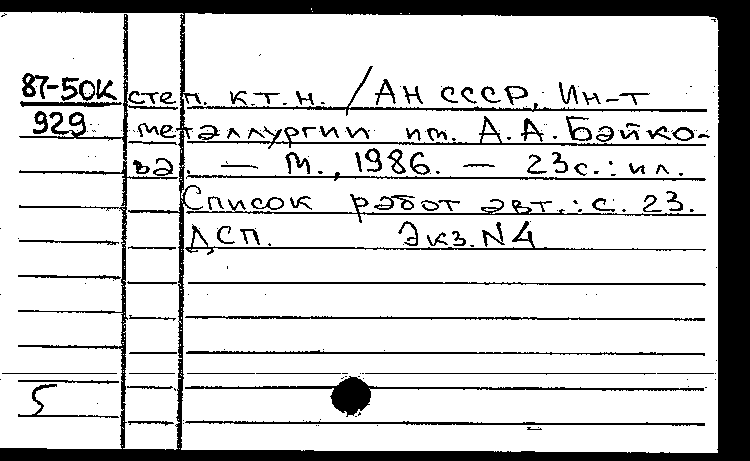 87-50К степ. к.т.н. / АН СССР, Ин-т
929 металлургии им. А.А.Байко-
ва. — М., 1986. — 23с.: ил.
Список работ авт.: с. 23.
ДСП. Экз.N4
5